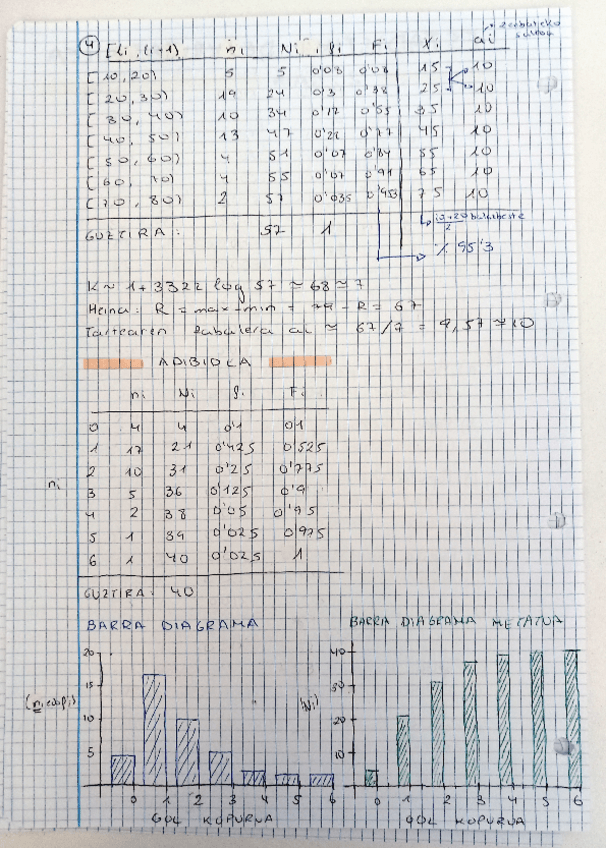 4 [Li, Li+1) ni Ni fi Fi Xi ai → zabalera
[10, 20) 5 5 0'08 0'08 15 10
[20, 30) 19 24 0'3 0'38 25 10
[30, 40) 10 34 0'17 0'55 35 10
[40, 50) 13 47 0'22 0'77 45 10
[50, 60) 4 51 0'07 0'84 55 10
[60, 70) 4 55 0'07 0'91 65 10
[70, 80) 2 57 0'035 0'953 75 10
10+20/2
GUZTIRA: 57 1
% 95'3
K ≈ 1+3322 log 57 ≈ 68 ≈ 7
Heina: R = max - min = 79 - R = 67
Tartearen zabalera ai ≈ 67/7 = 9,57 ≈ 10
ADIBIDEA
ni Ni fi Fi
0 4 4 0'1 0'1
1 17 21 0'425 0'525
2 10 31 0'25 0'775
ni
3 5 36 0'125 0'9
4 2 38 0'05 0'95
5 1 39 0'025 0'975
6 1 40 0'025 1
GUZTIRA: 40
BARRA DIAGRAMA
20
(ni edo fi)
15
10
5
0 1 2 3 4 5 6
GOL KOPURUA
BARRA DIAGRAMA METATUA
40
30
(Ni)
20
10
0 1 2 3 4 5 6
GOL KOPURUA